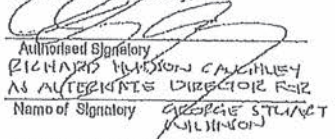 Authorised Signatory
RICHARD HUDSON CAUGHLEY
AS ALTERNATE DIRECTOR FOR
Name of Signatory GEORGE STUART
WILKINSON